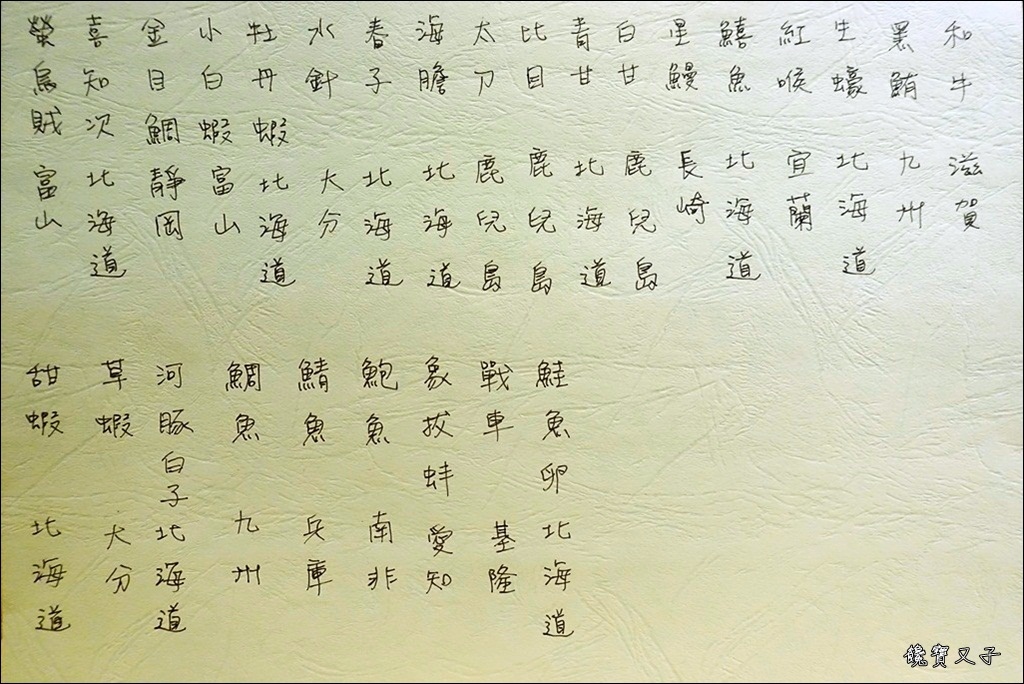 和牛 滋賀
黑鮪 九州
生蠔 北海道
紅喉 宜蘭
鱚魚 北海道
星鰻 長崎
白甘 鹿兒島
青甘 北海道
比目 鹿兒島
太刀 鹿兒島
海膽 北海道
春子 北海道
水針 大分
牡丹蝦 北海道
小白蝦 富山
金目鯛 靜岡
喜知次 北海道
螢烏賊 富山
鮭魚卵 北海道
戰車 基隆
象拔蚌 愛知
鮑魚 南非
鯖魚 兵庫
鯛魚 九州
河豚白子 北海道
草蝦 大分
甜蝦 北海道
饞寶又子